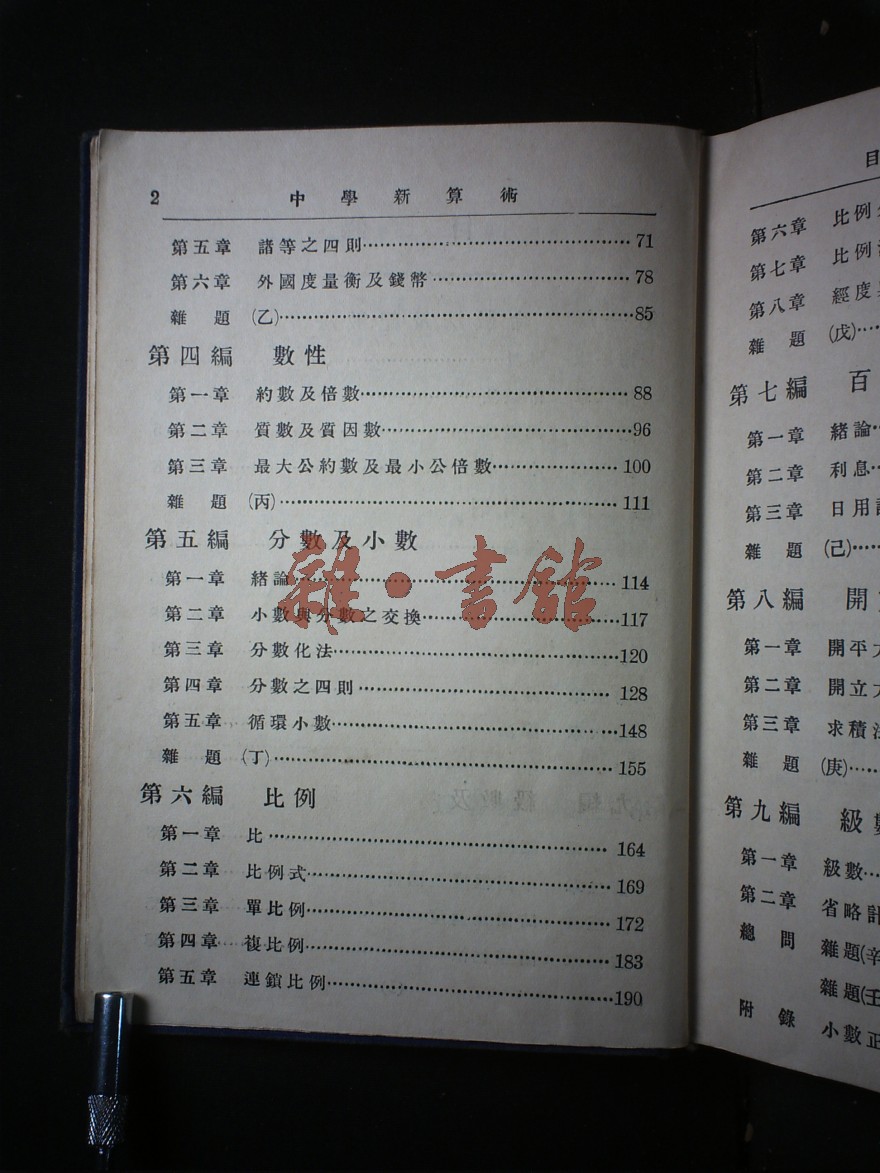 2 中學新算術
第五章 諸等之四則 71
第六章 外國度量衡及錢幣 78
雜題 (乙) 85
第四編 數性
第一章 約數及倍數 88
第二章 質數及質因數 96
第三章 最大公約數及最小公倍數 100
雜題 (丙) 111
第五編 分數及小數
第一章 緒論 114
第二章 小數與分數之交換 117
第三章 分數化法 120
第四章 分數之四則 128
第五章 循環小數 148
雜題 (丁) 155
第六編 比例
第一章 比 164
第二章 比例式 169
第三章 單比例 172
第四章 複比例 183
第五章 連鎖比例 190
雜·書館
目
第六章 比例
第七章 比例
第八章 經度
雜題 (戊)
第七編 百
第一章 緒論
第二章 利息
第三章 日用
雜題 (己)
第八編 開
第一章 開平
第二章 開立
第三章 求積
雜題 (庚)
第九編 級
第一章 級數
第二章 省略計
總問 雜題(辛
雜題(壬
附錄 小數正